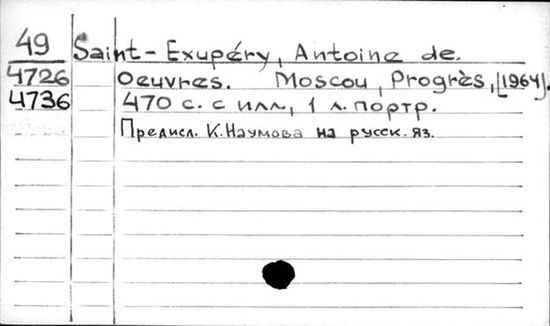 49 Saint-Exupéry, Antoine de.
4726 Oeuvres. Moscou, Progrès, [1964].
4736 470 с. с илл., 1 л. портр.
Предисл. К.Наумова на русск. яз.